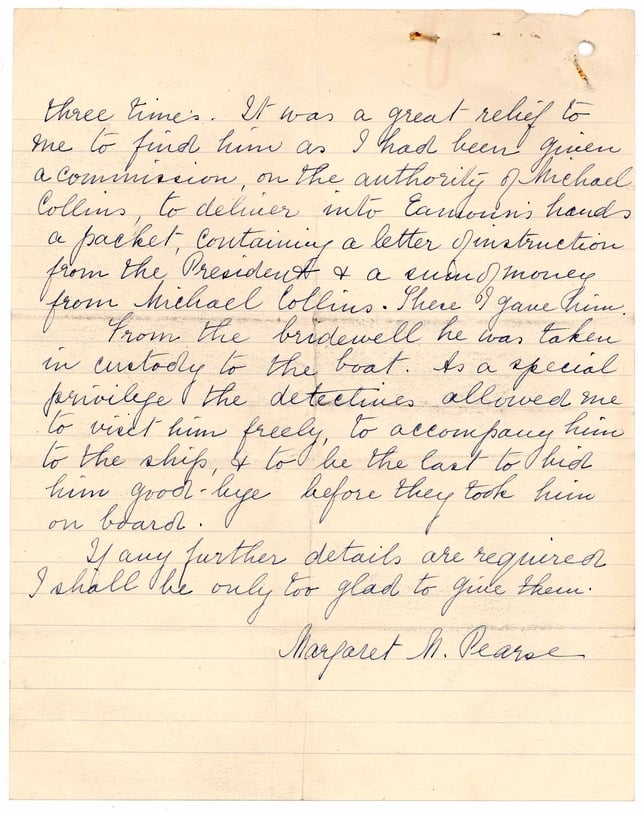 three times. It was a great relief to
me to find him as I had been given
a commission, on the authority of Michael
Collins, to deliver into Eamonn's hands
a packet, containing a letter of instruction
from the President & a sum of money
from Michael Collins. These I gave him.
From the bridewell he was taken
in custody to the boat. As a special
privilege the detectives allowed me
to visit him freely, to accompany him
to the ship, & to be the last to bid
him good-bye before they took him
on board.
If any further details are required
I shall be only too glad to give them.
Margaret M. Pearse